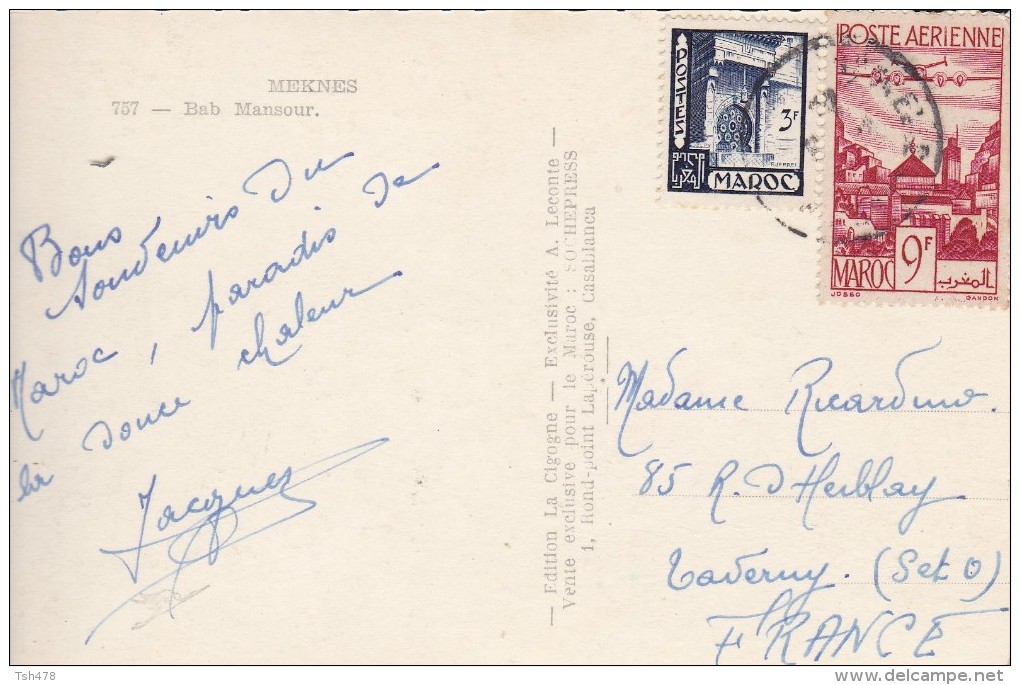 MEKNES
757 — Bab Mansour.
Bons
souvenirs du
Maroc, paradis de
la douce chaleur
Jacques
— Edition La Cigogne — Exclusivité A. Leconte —
Vente exclusive pour le Maroc : SOCHEPRESS
1, Rond-point Lapérouse, Casablanca
POSTES
3F
MAROC
POSTE AERIENNE
MAROC 9F المغرب
JOSSO GANDON
Madame Ricardino.
85 R. d'Herblay
Taverny. (S et O)
FRANCE
Tsh478
delcampe.net